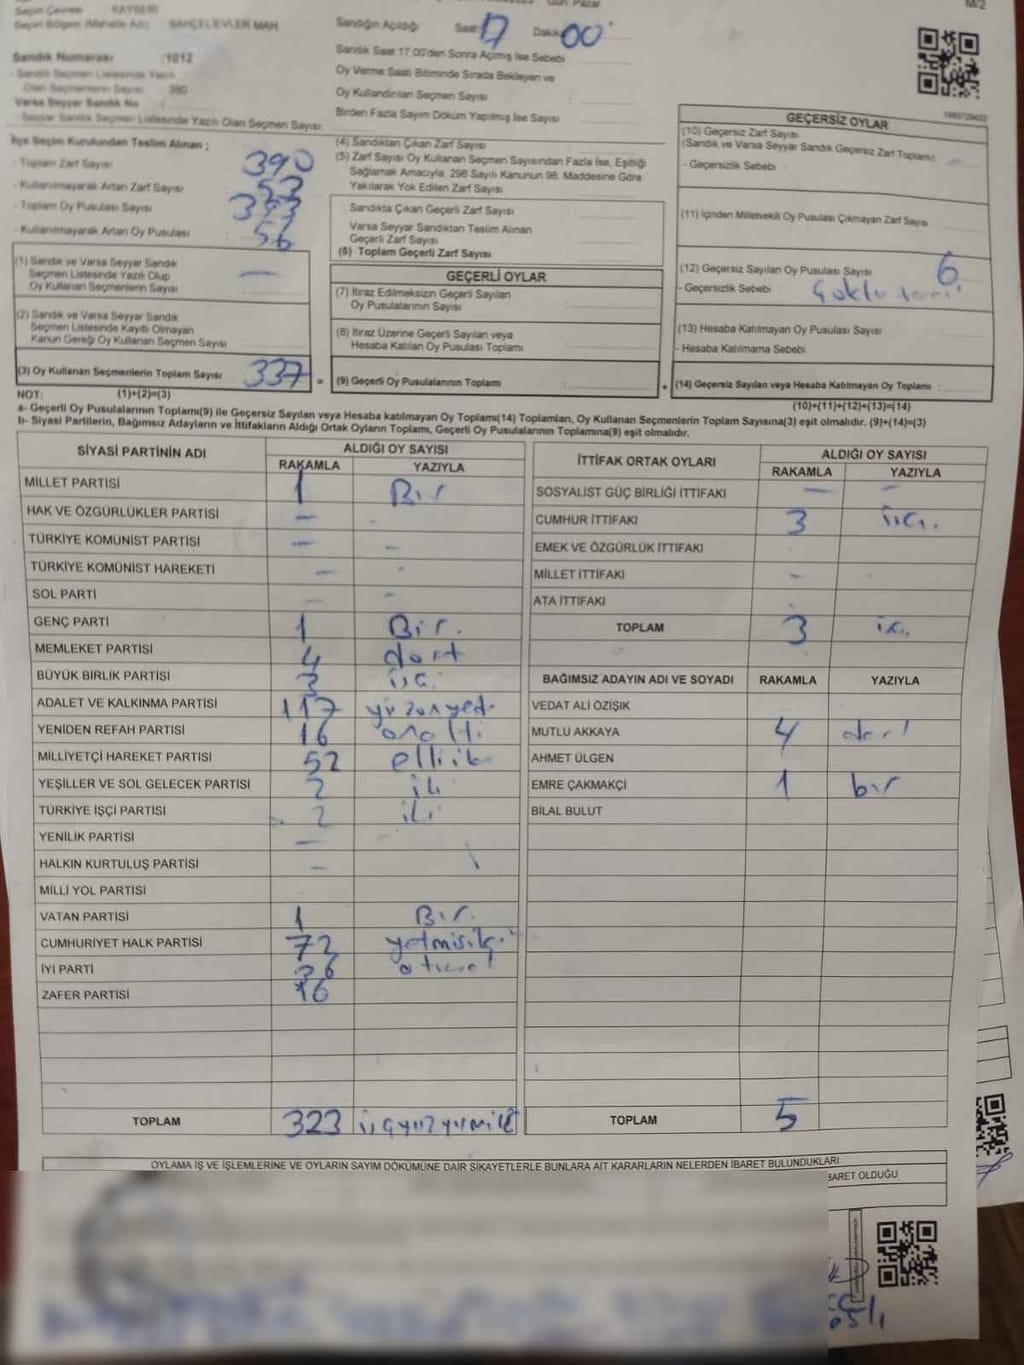 Seçim Çevresi : KAYSERİ
Seçim Bölgesi (Mahalle Adı) : BAHÇELİEVLER MAH
Sandık Numarası : 1012
- Sandık Seçmen Listesinde Yazılı
Olan Seçmenlerin Sayısı : 380
Varsa Seyyar Sandık No :
Seyyar Sandık Seçmen Listesinde Yazılı Olan Seçmen Sayısı:
İlçe Seçim Kurulundan Teslim Alınan ;
- Toplam Zarf Sayısı 390
- Kullanılmayarak Artan Zarf Sayısı 53
- Toplam Oy Pusulası Sayısı
- Kullanılmayarak Artan Oy Pusulası 56
(1) Sandık ve Varsa Seyyar Sandık
Seçmen Listesinde Yazılı Olup
Oy Kullanan Seçmenlerin Sayısı —
(2) Sandık ve Varsa Seyyar Sandık
Seçmen Listesinde Kayıtlı Olmayan
Kanun Gereği Oy Kullanan Seçmen Sayısı
(3) Oy Kullanan Seçmenlerin Toplam Sayısı 337 =
NOT: (1)+(2)=(3)
Gün Pazar
Sandığın Açıldığı Saat 17 Dakika 00
Sandık Saat 17:00'den Sonra Açılmış İse Sebebi
Oy Verme Saati Bitiminde Sırada Bekleyen ve
Oy Kullandırılan Seçmen Sayısı
Birden Fazla Sayım Döküm Yapılmış İse Sayısı
(4) Sandıktan Çıkan Zarf Sayısı
(5) Zarf Sayısı Oy Kullanan Seçmen Sayısından Fazla İse, Eşitliği
Sağlamak Amacıyla, 298 Sayılı Kanunun 98. Maddesine Göre
Yakılarak Yok Edilen Zarf Sayısı
Sandıkta Çıkan Geçerli Zarf Sayısı
Varsa Seyyar Sandıktan Teslim Alınan
Geçerli Zarf Sayısı
(6) Toplam Geçerli Zarf Sayısı
GEÇERLİ OYLAR
(7) İtiraz Edilmeksizin Geçerli Sayılan
Oy Pusulalarının Sayısı
(8) İtiraz Üzerine Geçerli Sayılan veya
Hesaba Katılan Oy Pusulası Toplamı
(9) Geçerli Oy Pusulalarının Toplamı +
M/2
GEÇERSİZ OYLAR
(10) Geçersiz Zarf Sayısı
(Sandık ve Varsa Seyyar Sandık Geçersiz Zarf Toplamı)
- Geçersizlik Sebebi :
(11) İçinden Milletvekili Oy Pusulası Çıkmayan Zarf Sayısı
(12) Geçersiz Sayılan Oy Pusulası Sayısı 6
- Geçersizlik Sebebi :
(13) Hesaba Katılmayan Oy Pusulası Sayısı
- Hesaba Katılmama Sebebi
(14) Geçersiz Sayılan veya Hesaba Katılmayan Oy Toplamı
(10)+(11)+(12)+(13)=(14)
a- Geçerli Oy Pusulalarının Toplamı(9) ile Geçersiz Sayılan veya Hesaba katılmayan Oy Toplamı(14) Toplamları, Oy Kullanan Seçmenlerin Toplam Sayısına(3) eşit olmalıdır. (9)+(14)=(3)
b- Siyasi Partilerin, Bağımsız Adayların ve İttifakların Aldığı Ortak Oyların Toplamı, Geçerli Oy Pusulalarının Toplamına(9) eşit olmalıdır.
SİYASİ PARTİNİN ADI ALDIĞI OY SAYISI
RAKAMLA YAZIYLA
MİLLET PARTİSİ 1 Bir
HAK VE ÖZGÜRLÜKLER PARTİSİ —
TÜRKİYE KOMÜNİST PARTİSİ — —
TÜRKİYE KOMÜNİST HAREKETİ — -
SOL PARTİ — -
GENÇ PARTİ 1 Bir.
MEMLEKET PARTİSİ 4 dört
BÜYÜK BİRLİK PARTİSİ 3 üç
ADALET VE KALKINMA PARTİSİ 117
YENİDEN REFAH PARTİSİ 16 onaltı
MİLLİYETÇİ HAREKET PARTİSİ 52
YEŞİLLER VE SOL GELECEK PARTİSİ 2 iki
TÜRKİYE İŞÇİ PARTİSİ 2 iki
YENİLİK PARTİSİ —
HALKIN KURTULUŞ PARTİSİ —
MİLLİ YOL PARTİSİ
VATAN PARTİSİ 1 Bir.
CUMHURİYET HALK PARTİSİ 72 yetmişiki
İYİ PARTİ 36
ZAFER PARTİSİ 16
TOPLAM 323
İTTİFAK ORTAK OYLARI ALDIĞI OY SAYISI
RAKAMLA YAZIYLA
SOSYALİST GÜÇ BİRLİĞİ İTTİFAKI — -
CUMHUR İTTİFAKI 3 üç.
EMEK VE ÖZGÜRLÜK İTTİFAKI
MİLLET İTTİFAKI -
ATA İTTİFAKI
TOPLAM 3 üç
BAĞIMSIZ ADAYIN ADI VE SOYADI RAKAMLA YAZIYLA
VEDAT ALİ ÖZIŞIK
MUTLU AKKAYA 4 dört
AHMET ÜLGEN
EMRE ÇAKMAKÇİ 1 bir
BİLAL BULUT
TOPLAM 5
OYLAMA İŞ VE İŞLEMLERİNE VE OYLARIN SAYIM DÖKÜMÜNE DAİR ŞİKAYETLERLE BUNLARA AİT KARARLARIN NELERDEN İBARET BULUNDUKLARI
BARET OLDUĞU